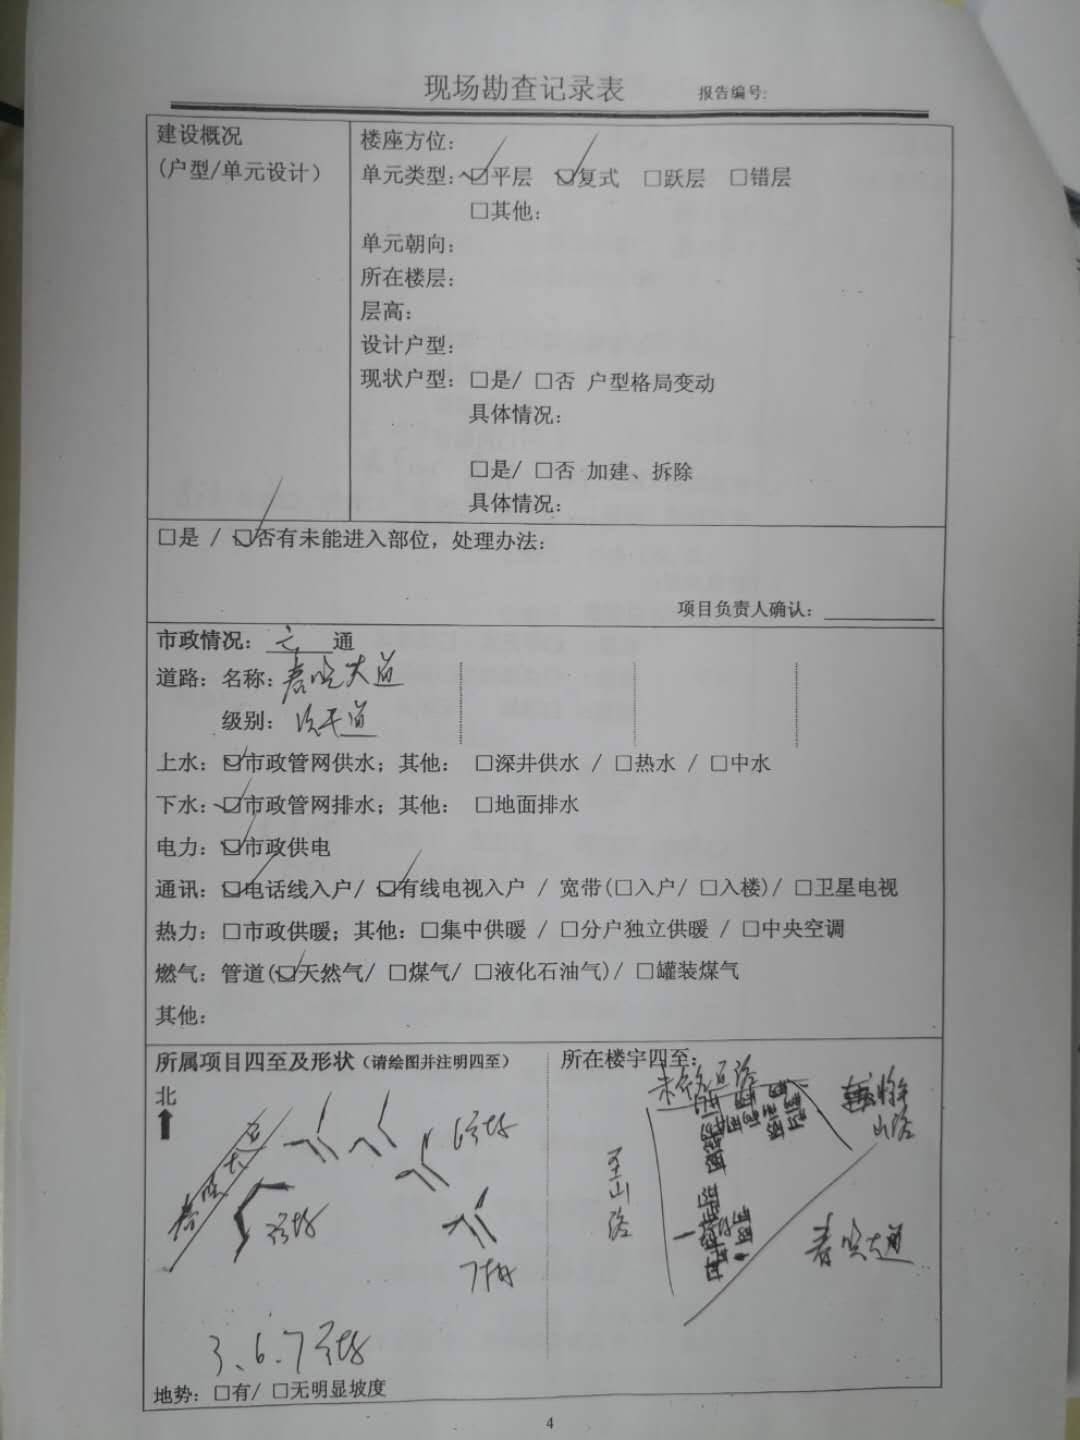 现场勘查记录表 报告编号:
建设概况
(户型/单元设计)
楼座方位:
单元类型: ☑平层 ☑复式 □跃层 □错层
□其他:
单元朝向:
所在楼层:
层高:
设计户型:
现状户型: □是/ □否 户型格局变动
具体情况:
□是/ □否 加建、拆除
具体情况:
□是 / ☑否有未能进入部位, 处理办法:
项目负责人确认:
市政情况: 六 通
道路: 名称: 春晓大道
级别: 次干道
上水: ☑市政管网供水; 其他: □深井供水 / □热水 / □中水
下水: ☑市政管网排水; 其他: □地面排水
电力: ☑市政供电
通讯: ☑电话线入户/ ☑有线电视入户 / 宽带(□入户/ □入楼)/ □卫星电视
热力: □市政供暖; 其他: □集中供暖 / □分户独立供暖 / □中央空调
燃气: 管道(☑天然气/ □煤气/ □液化石油气)/ □罐装煤气
其他:
所属项目四至及形状(请绘图并注明四至)
北
春晓大道
6号楼
3号楼
7号楼
3、6、7号楼
所在楼宇四至:
未命名道路
山路
春晓大道
地势: □有/ □无明显坡度
4